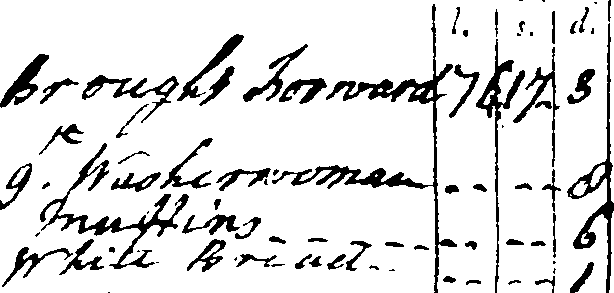 l. s. d.
Brought Forward 76 17 3
ye
g. Washerwoman - - - - - 8
Muffins - - - - - - - 6
White Bread - - - - - - 1